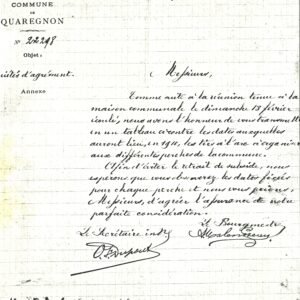 COMMUNE
DE
QUAREGNON
Nº 22248
Objet:
iétés d'agrément.
Annexe
Messieurs,
Comme suite à la réunion tenue à la
maison communale le dimanche 13 février
écoulé, nous avons l'honneur de vous transmettre
en un tableau ci-contre les dates auxquelles
auront lieu, en 1910, les tirs à l'arc à organiser
aux différentes perches de la commune.
Afin d'éviter le retrait de subside, nous
espérons que vous observerez les dates fixées
pour chaque perche et nous vous prions,
Messieurs, d'agréer l'assurance de notre
parfaite considération.
Le Secrétaire int.
Le Bourgmestre